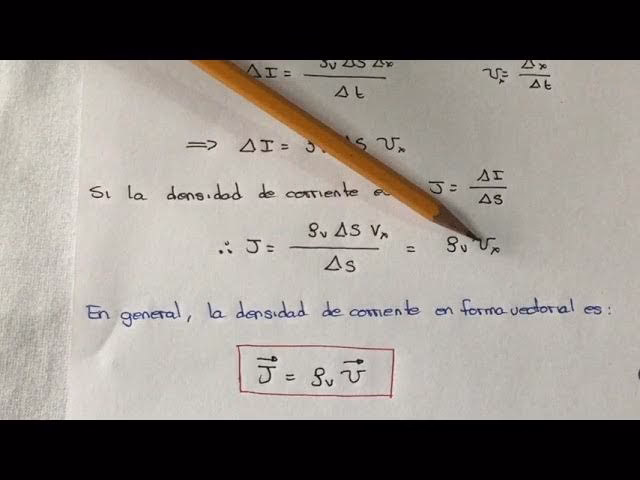 ΔI = ρᵥ ΔS Δx / Δt    vₓ = Δx / Δt
⟹ ΔI = ΔS vₓ
Si la densidad de corriente J = ΔI / ΔS
∴ J = ρᵥ ΔS vₓ / ΔS = ρᵥ vₓ
En general, la densidad de corriente en forma vectorial es:
J⃗ = ρᵥ v⃗